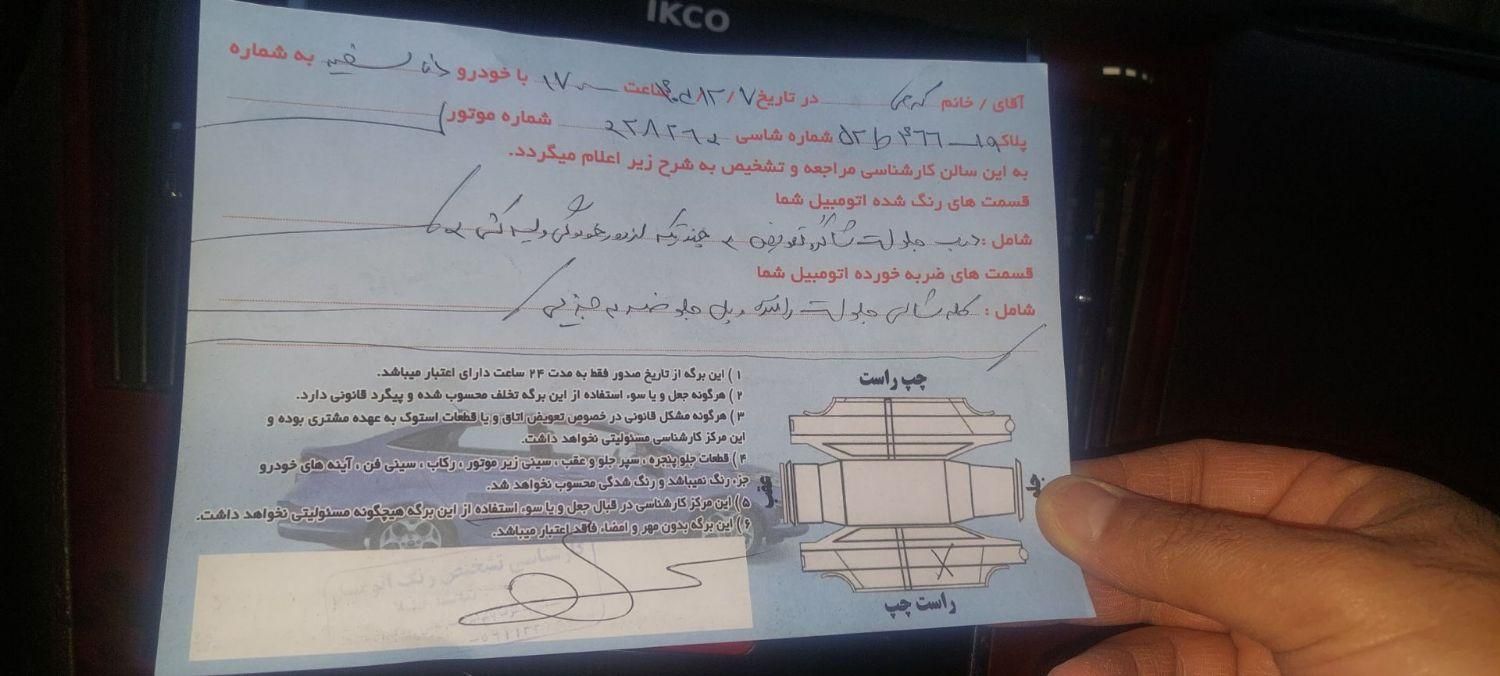 IKCO
آقای / خانم کرمی در تاریخ ۱۲/۷ ساعت ۱۷ با خودرو دنا سفید به شماره
پلاک ۱۹ ـ ۴۶۶ ط ۵۲ شماره شاسی شماره موتور
به این سالن کارشناسی مراجعه و تشخیص به شرح زیر اعلام میگردد.
قسمت های رنگ شده اتومبیل شما
شامل : درب جلو سمت شاگرد تعویض و چند تیکه لیسه گیری
قسمت های ضربه خورده اتومبیل شما
شامل : کله شاسی جلو سمت راننده و پل جلو ضربه جزیی
۱ ) این برگه از تاریخ صدور فقط به مدت ۲۴ ساعت دارای اعتبار میباشد.
۲ ) هرگونه جعل و یا سوء استفاده از این برگه تخلف محسوب شده و پیگرد قانونی دارد.
۳ ) هرگونه مشکل قانونی در خصوص تعویض اتاق و یا قطعات استوک به عهده مشتری بوده و
این مرکز کارشناسی مسئولیتی نخواهد داشت.
۴ ) قطعات جلو پنجره ، سپر جلو و عقب ، سینی زیر موتور ، رکاب ، سینی فن ، آینه های خودرو
جزء رنگ نمیباشد و رنگ شدگی محسوب نخواهد شد.
۵ ) این مرکز کارشناسی در قبال جعل و یا سوء استفاده از این برگه هیچگونه مسئولیتی نخواهد داشت.
۶ ) این برگه بدون مهر و امضاء فاقد اعتبار میباشد.
چپ راست
عقب
جلو
راست چپ
کارشناسی تشخیص رنگ اتومبیل